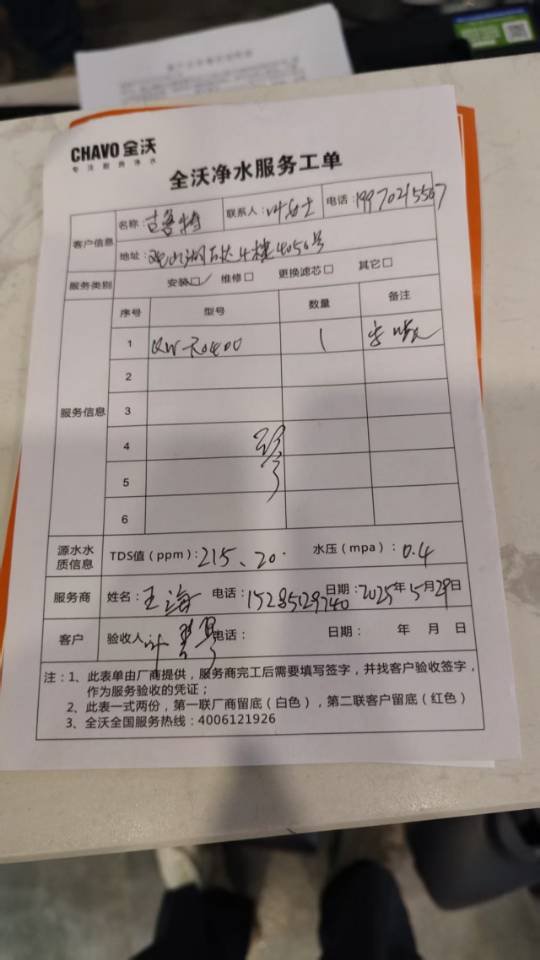 CHAVO 全沃
专注厨房净水
全沃净水服务工单
客户信息 名称: 吉鲁 联系人: 叶女士 电话: 19970215567
地址: 观山湖 4楼4056号
服务类别 安装□✓ 维修□ 更换滤芯□ 其它□
服务信息 序号 型号 数量 备注
1 QW-R0400 1
2
3
4
5
6
源水水质信息 TDS值(ppm): 215、20. 水压(mpa): 0.4
服务商 姓名: 王海 电话: 15285129740 日期: 2025年5月29日
客户 验收人 叶 电话: 日期: 年 月 日
注:1、此表单由厂商提供,服务商完工后需要填写签字,并找客户验收签字,
作为服务验收的凭证;
2、此表一式两份,第一联厂商留底(白色),第二联客户留底(红色)
3、全沃全国服务热线:4006121926